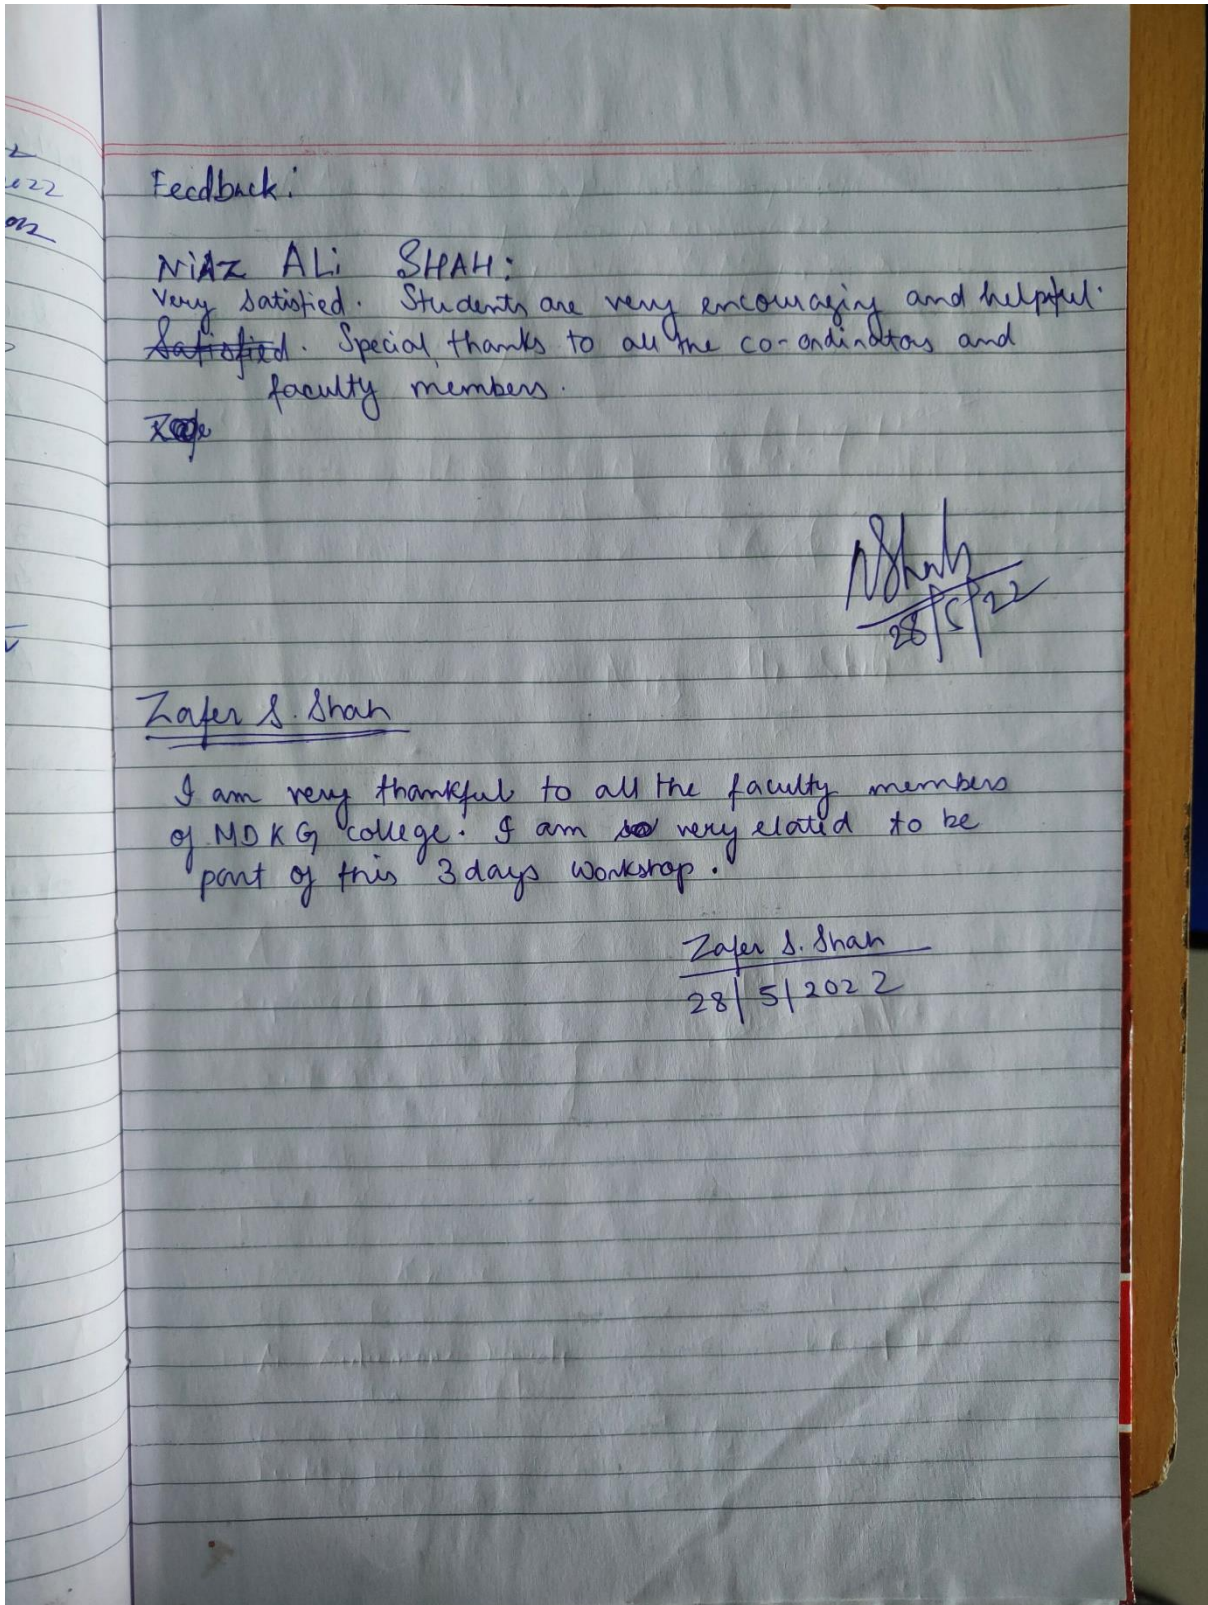 Feedback:
NiAZ ALi SHAH:
Very satisfied. Students are very encouraging and helpful.
Satisfied. Special thanks to all the co-ordinators and
faculty members.
NShah
28/5/22
Zafer S. Shah
I am very thankful to all the faculty members
of MDKG college. I am very elated to be
part of this 3 days workshop.
Zafer S. Shah
28/5/2022